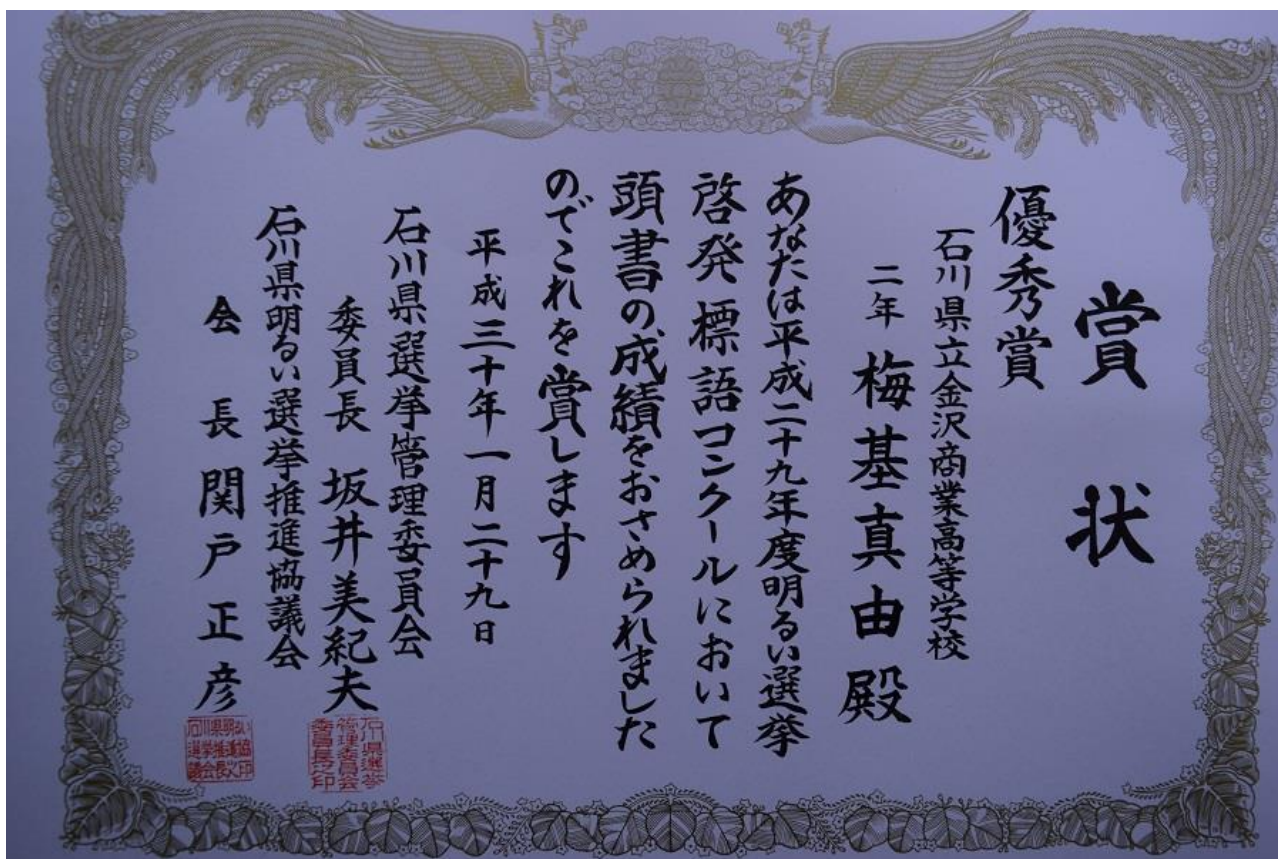 賞状
優秀賞
石川県立金沢商業高等学校
二年 梅基真由殿
あなたは平成二十九年度明るい選挙
啓発標語コンクールにおいて
頭書の成績をおさめられました
のでこれを賞します
平成三十年一月二十九日
石川県選挙管理委員会
委員長 坂井美紀夫
石川県選挙
管理委員会
委員長之印
石川県明るい選挙推進協議会
会長 関戸正彦